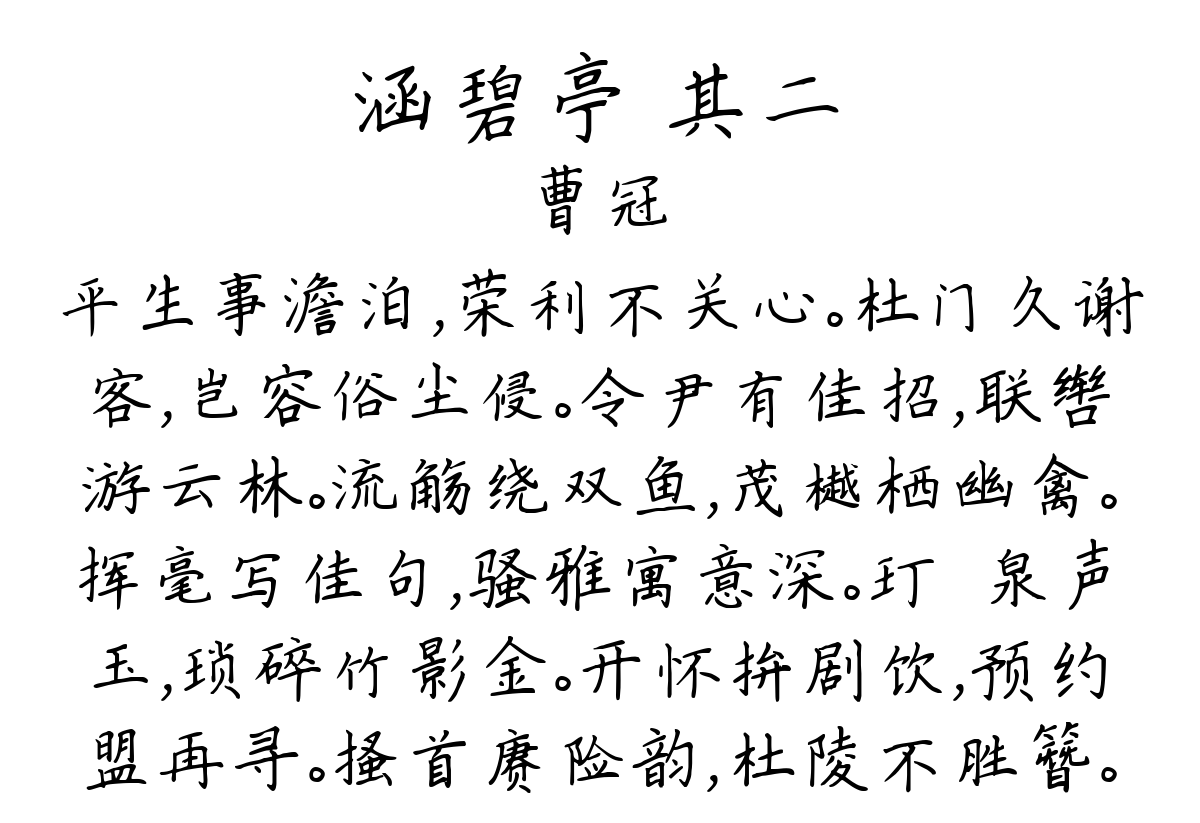 涵碧亭 其二
曹冠
平生事澹泊,荣利不关心。杜门久谢
客,岂容俗尘侵。令尹有佳招,联辔
游云林。流觞绕双鱼,茂樾栖幽禽。
挥毫写佳句,骚雅寓意深。玎 泉声
玉,琐碎竹影金。开怀拚剧饮,预约
盟再寻。搔首赓险韵,杜陵不胜簪。